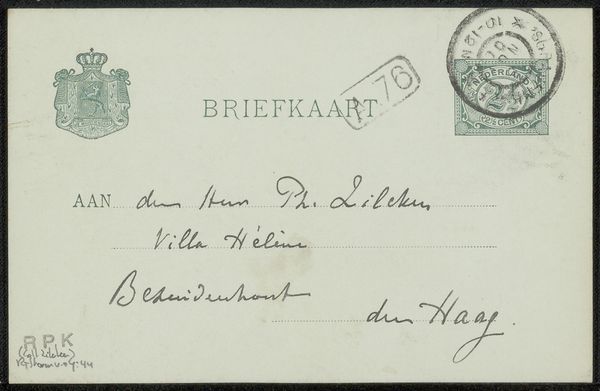 BRIEFKAART
A.76
10-12 M
NEDERLAND
2½
(2½ CENT)
AAN den Heer Ph. Zilcken
Villa Hélène
Bezuidenhout
den Haag.
R P K
(coll Zilcken)